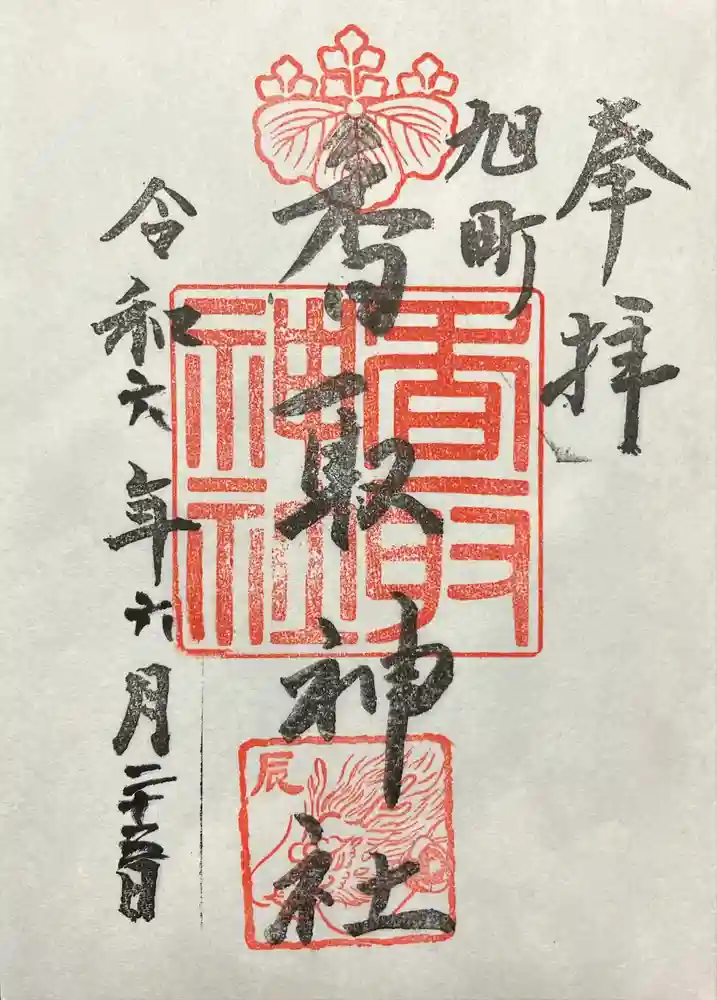 奉拝
旭町
香取神社
香取神社
辰
令和六年六月二十三日